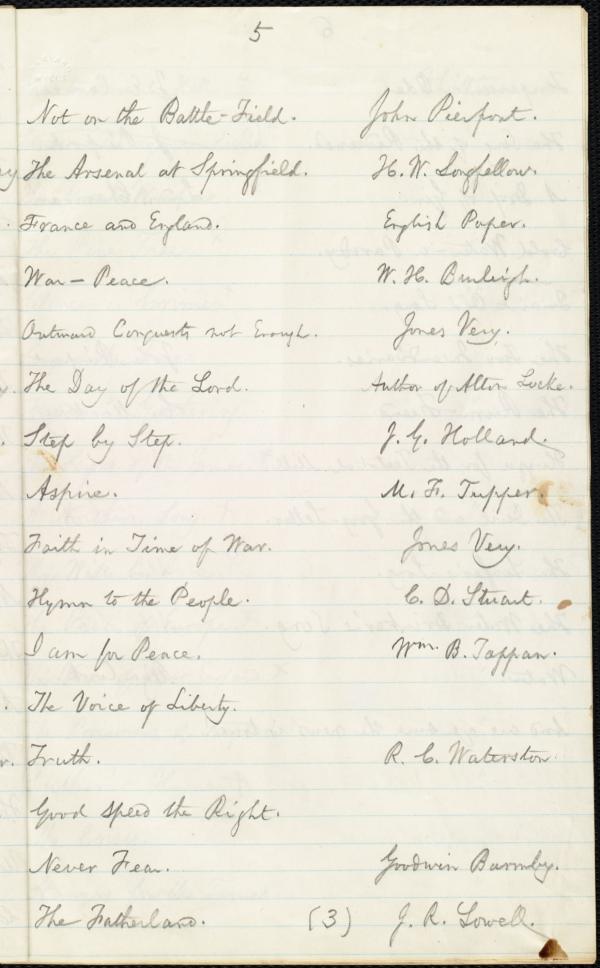 5
Not on the Battle-Field. John Pierpont.
The Arsenal at Springfield. H. W. Longfellow.
France and England. English Paper.
War - Peace. W. H. Burleigh.
Outward Conquests not Enough. Jones Very.
The Day of the Lord. Author of Alton Locke.
Step by Step. J. G. Holland.
Aspire. M. F. Tupper.
Faith in Time of War. Jones Very.
Hymn to the People. C. D. Stuart.
I am for Peace. Wm. B. Tappan.
The Voice of Liberty.
Truth. R. C. Waterston.
Good speed the Right.
Never Fear. Goodwin Barmby.
The Fatherland. (3) J. R. Lowell.